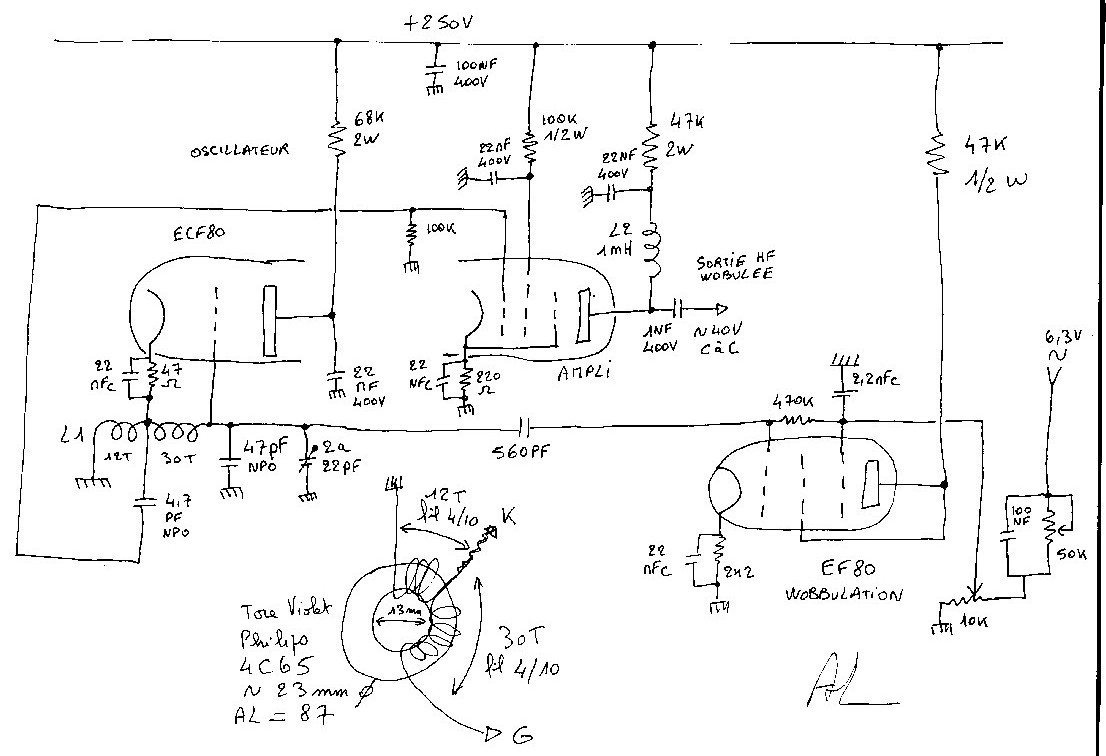 +250V
100NF
400V
68K
2W
100K
1/2W
47K
2W
47K
1/2 W
OSCILLATEUR
22nF
400V
22NF
400V
ECF80
100K
L2
1mH
SORTIE HF
WOBULEE
1NF
400V
~40V
CàC
AMPLI
22
nFc
47
Ω
22
NF
400V
22
NFC
220
Ω
6,3V
~
2,2nFc
470K
L1
12T
30T
47pF
NPO
2a
22pF
560PF
4,7
PF
NPO
12T
fil 4/10
K
13mm
30T
fil 4/10
G
Tore Violet
Philips
4C65
~ 23mm ϕ
AL = 87
22
nFc
2k2
EF80
WOBBULATION
100
NF
50K
10K
AL